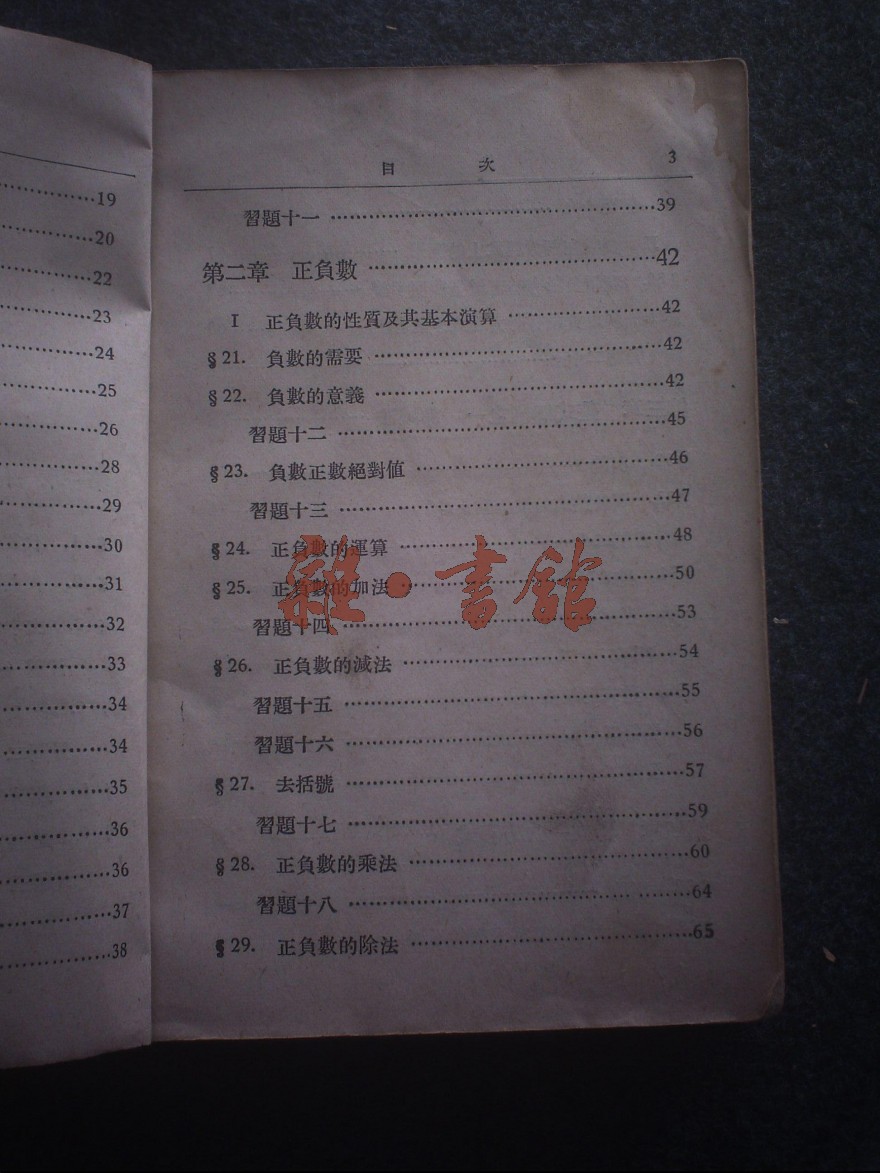 19
20
22
23
24
25
26
28
29
30
31
32
33
34
34
35
36
36
37
38
目 次 3
習題十一 39
第二章 正負數 42
I 正負數的性質及其基本演算 42
§21. 負數的需要 42
§22. 負數的意義 42
習題十二 45
§23. 負數正數絕對值 46
習題十三 47
§24. 正負數的運算 48
§25. 正負數的加法 50
習題十四 53
§26. 正負數的減法 54
習題十五 55
習題十六 56
§27. 去括號 57
習題十七 59
§28. 正負數的乘法 60
習題十八 64
§29. 正負數的除法 65
雜·書館